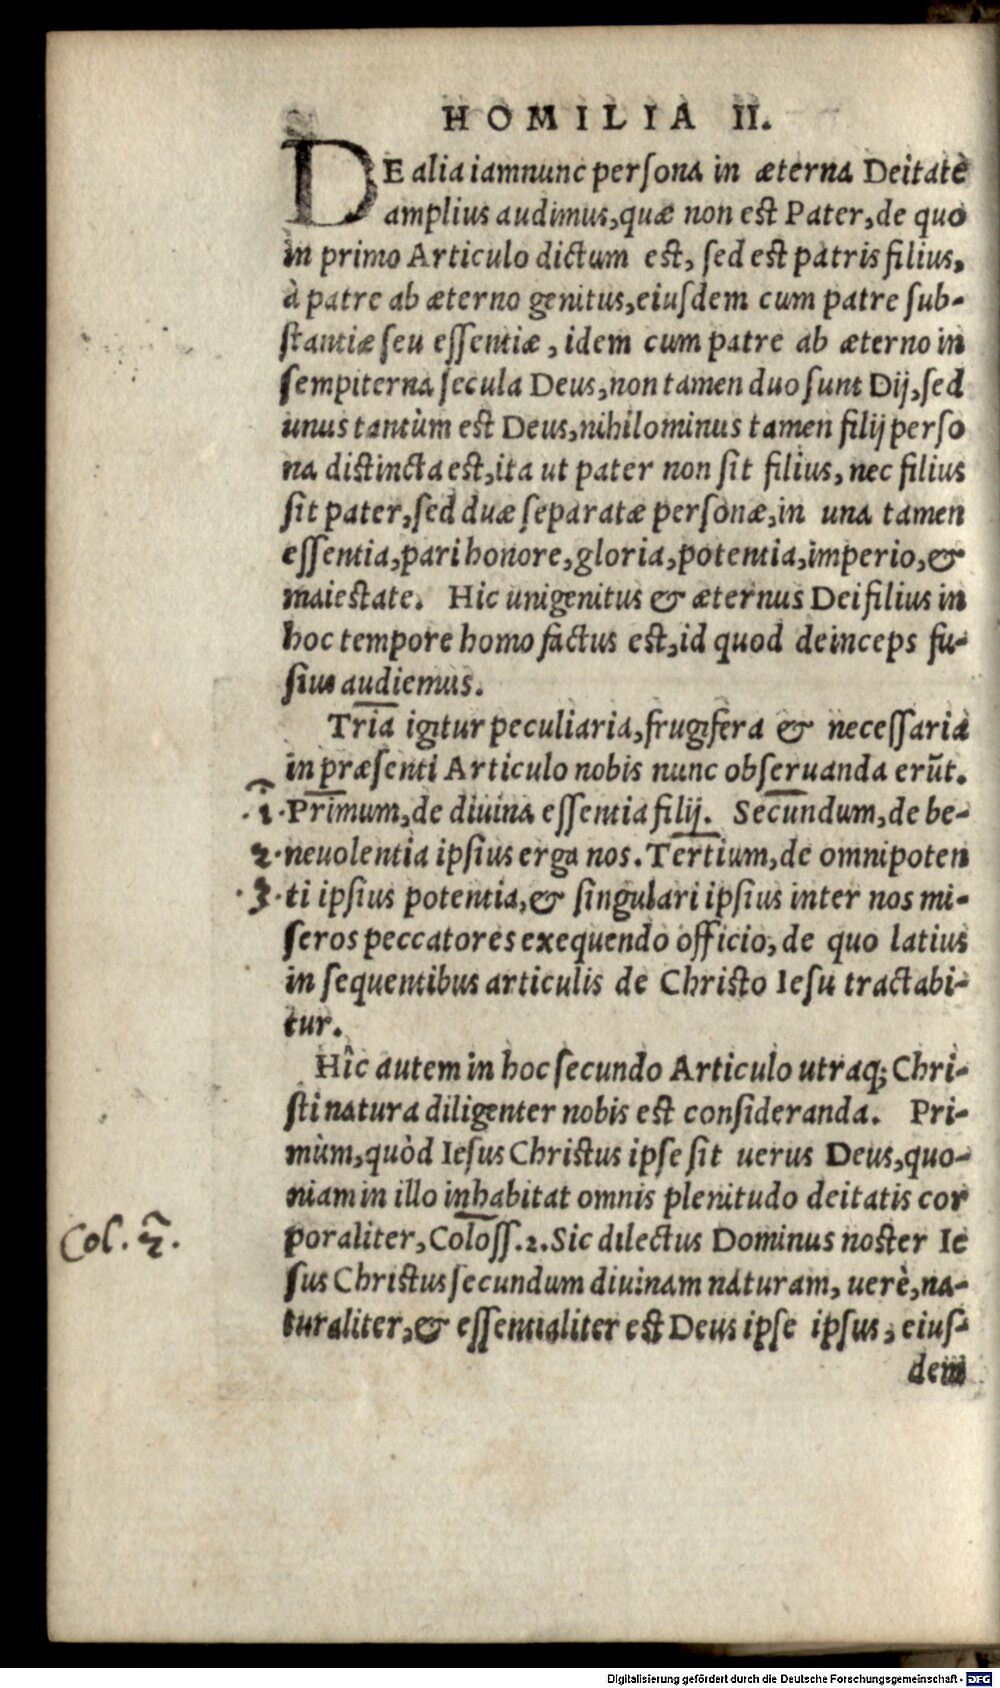 HOMILIA II.
DE alia iamnunc persona in æterna Deitate
amplius audimus, quæ non est Pater, de quo
in primo Articulo dictum est, sed est patris filius,
à patre ab æterno genitus, eiusdem cum patre sub-
stantiæ seu essentiæ, idem cum patre ab æterno in
sempiterna secula Deus, non tamen duo sunt Dij, sed
unus tantùm est Deus, nihilominus tamen filij perso
na distincta est, ita ut pater non sit filius, nec filius
sit pater, sed duæ separatæ personæ, in una tamen
essentia, pari honore, gloria, potentia, imperio, &
maiestate. Hic unigenitus & æternus Dei filius in
hoc tempore homo factus est, id quod deinceps fu-
sius audiemus.
Tria igitur peculiaria, frugifera & necessaria
in præsenti Articulo nobis nunc obseruanda erūt.
.1. Primum, de diuina essentia filij. Secundum, de be-
2. neuolentia ipsius erga nos. Tertium, de omnipoten
.3. ti ipsius potentia, & singulari ipsius inter nos mi-
seros peccatores exequendo officio, de quo latius
in sequentibus articulis de Christo Iesu tractabi-
tur.
Hîc autem in hoc secundo Articulo utraq; Chri-
sti natura diligenter nobis est consideranda. Pri-
mùm, quòd Iesus Christus ipse sit uerus Deus, quo-
niam in illo inhabitat omnis plenitudo deitatis cor
Col. 2.
poraliter, Coloss. 2. Sic dilectus Dominus noster Ie
sus Christus secundum diuinam naturam, uerè, na-
turaliter, & essentialiter est Deus ipse ipsus, eius-
dem
Digitalisierung gefördert durch die Deutsche Forschungsgemeinschaft - DFG